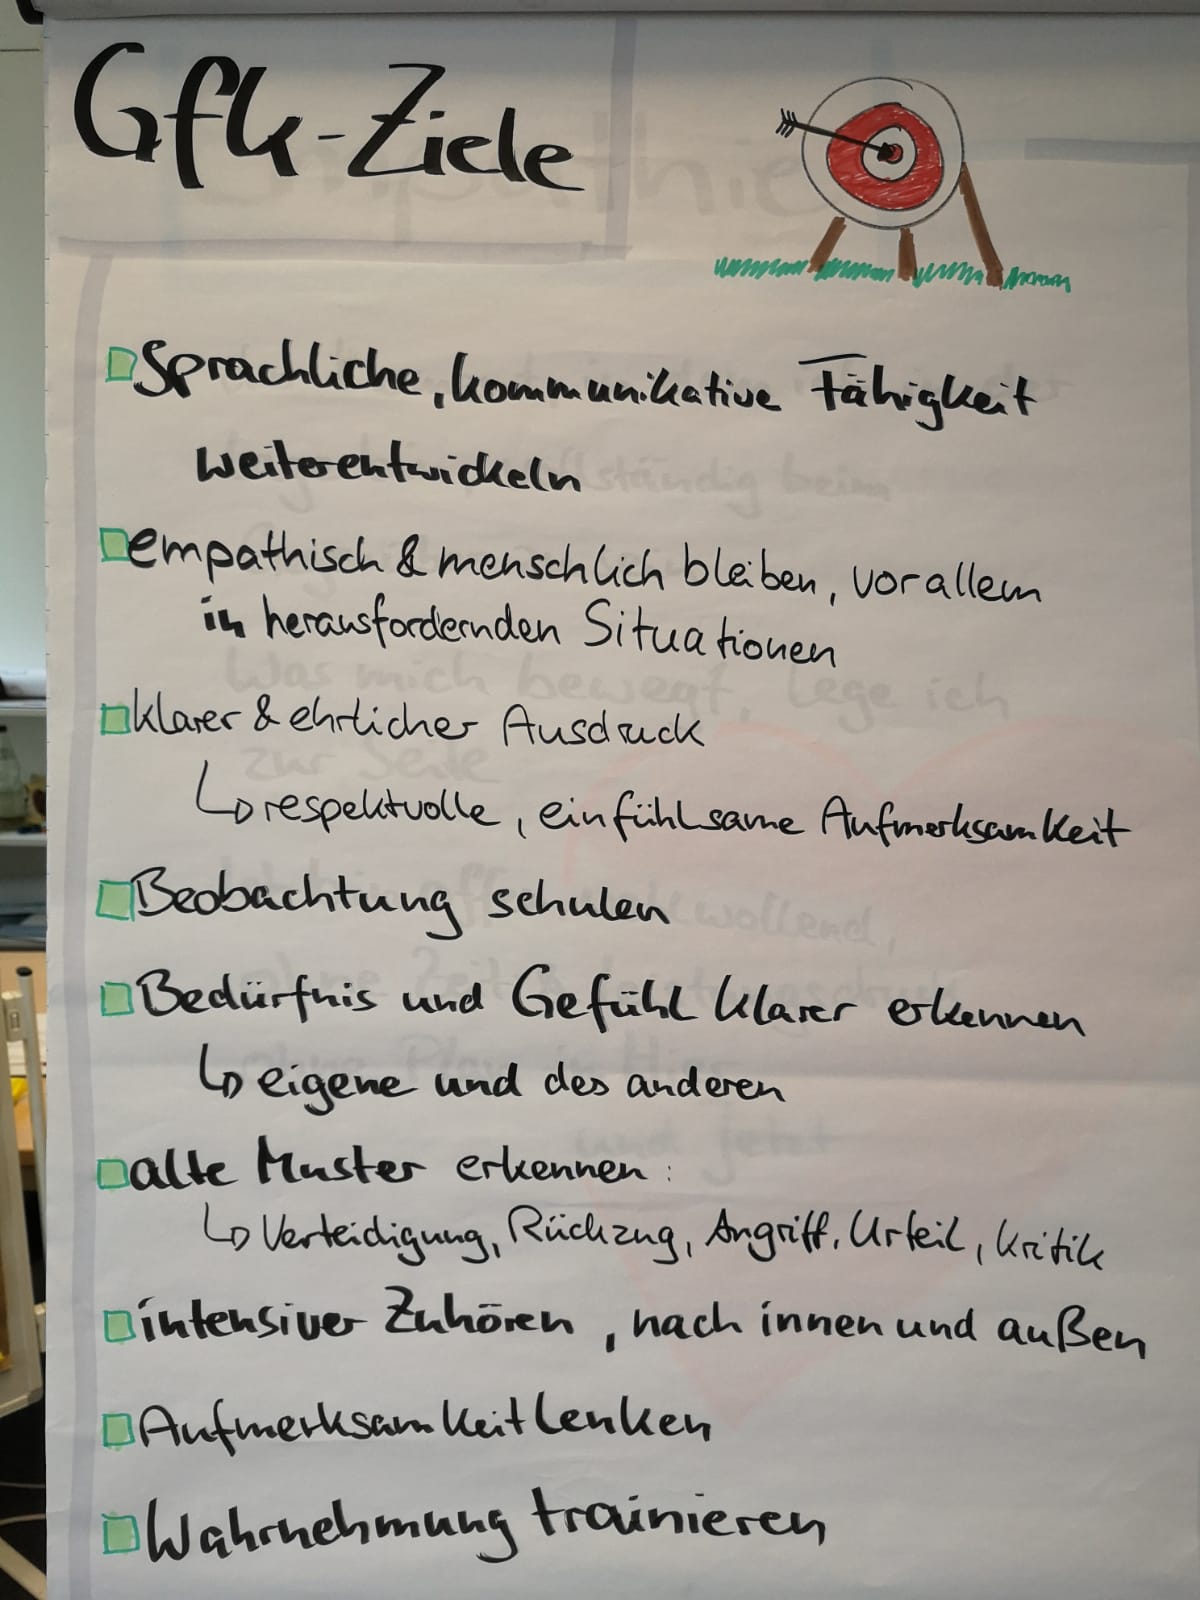 GfK-Ziele
Sprachliche, kommunikative Fähigkeit
weiterentwickeln
empathisch & menschlich bleiben, vor allem
in herausfordernden Situationen
klarer & ehrlicher Ausdruck
↳ respektvolle, einfühlsame Aufmerksamkeit
Beobachtung schulen
Bedürfnis und Gefühl klarer erkennen
↳ eigene und des anderen
alte Muster erkennen:
↳ Verteidigung, Rückzug, Angriff, Urteil, Kritik
intensiver Zuhören, nach innen und außen
Aufmerksamkeit lenken
Wahrnehmung trainieren